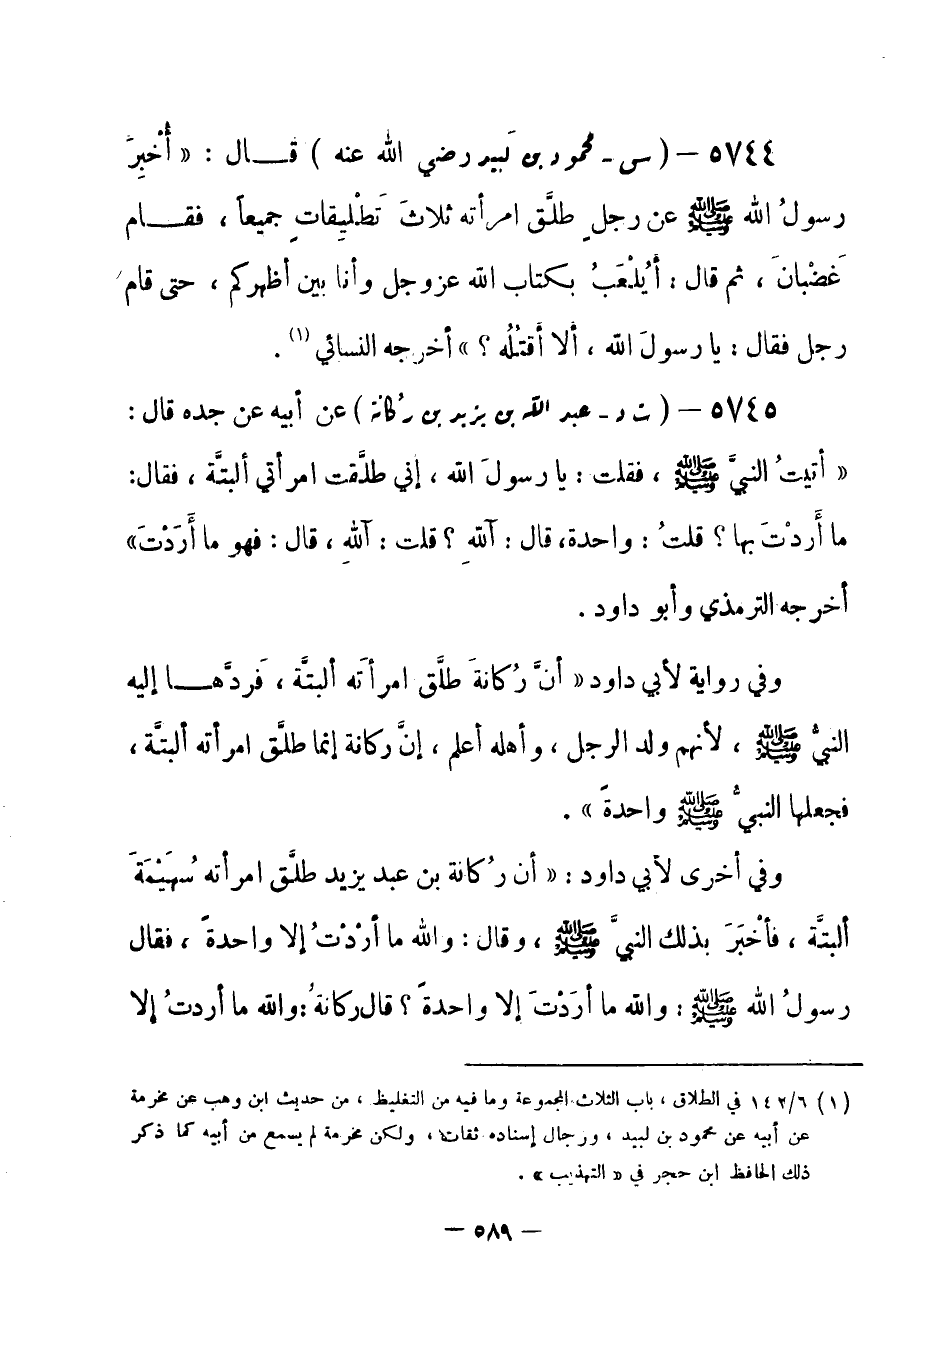 ٥٧٤٤ – ( س - محمود بن لَبيد رضي الله عنه ) قــال : « أُخْبِرَ
رسولُ الله ﷺ عن رجلٍ طلَّق امرأته ثلاثَ تَطْلِيقاتٍ جميعاً ، فقــام
غَضْبانَ ، ثم قال : أَيُلْعَبُ بكتاب الله عزوجل وأنا بين أظهركم ، حتى قام
رجل فقال : يا رسولَ الله ، ألا أقتُلُه ؟ » أخرجه النسائي (١) .
٥٧٤٥ – ( ت د - عبد الله بن يزيد بن رُكانة ) عن أبيه عن جده قال :
« أتيتُ النبيَّ ﷺ ، فقلت : يا رسولَ الله ، إني طلَّقت امرأتي ألبتَّة ، فقال:
ما أَردْتَ بها ؟ قلتُ : واحدة، قال : آللهِ ؟ قلت : آللهِ ، قال : فهو ما أَرَدْتَ»
أخرجه الترمذي وأبو داود .
وفي رواية لأبي داود « أنَّ رُكانةَ طلَّق امرأتَه ألبتَّة ، فَردَّهــا إليه
النبيُّ ﷺ ، لأنهم ولد الرجل ، وأهله أعلم ، إنَّ ركانة إنما طلَّق امرأته ألبتَّة ،
فجعلها النبيُّ ﷺ واحدةً » .
وفي أخرى لأبي داود : « أن رُكانة بن عبد يزيد طلَّق امرأته سُهَيْمَةَ
ألبتَّة ، فأخْبَرَ بذلك النبيَّ ﷺ ، وقال : والله ما أرَدْتُ إلا واحدةً ، فقال
رسولُ الله ﷺ : والله ما أرَدْتَ إلا واحدةً ؟ قال ركانةُ : والله ما أردتُ إلا
(١) ١٤٢/٦ في الطلاق ، باب الثلاث المجموعة وما فيه من التغليظ ، من حديث ابن وهب عن مخرمة
عن أبيه عن محمود بن لبيد ، ورجال إسناده ثقات ، ولكن مخرمة لم يسمع من أبيه كما ذكر
ذلك الحافظ ابن حجر في « التهذيب » .
– ٥٨٩ –